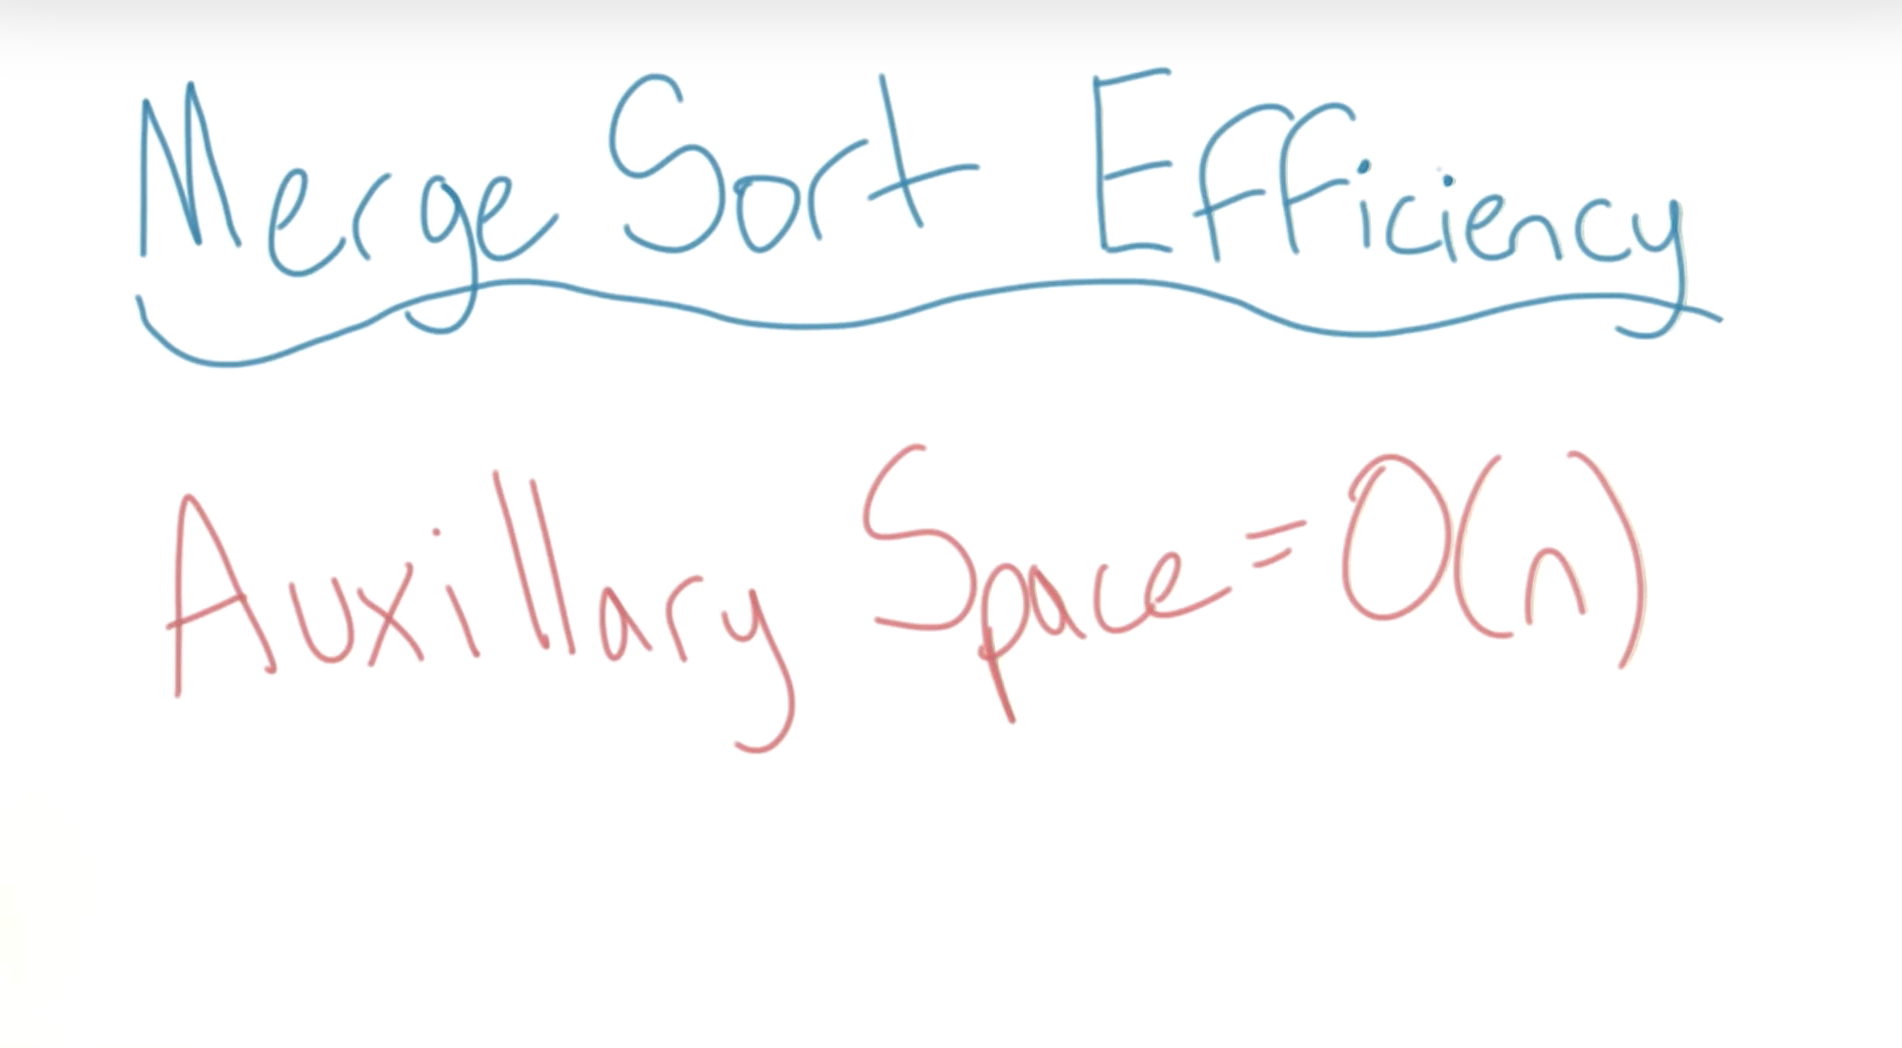 Merge Sort Efficiency
Auxillary Space = O(n)